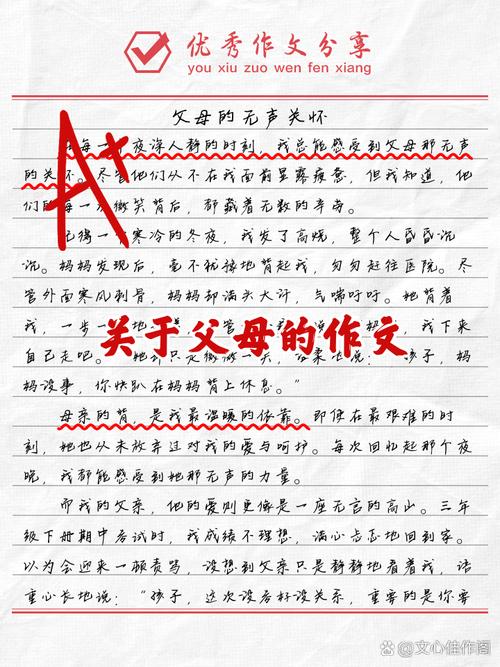 优秀作文分享
you xiu zuo wen fen xiang
A+
父母的无声关怀
每一 夜深人静的时刻，我总能感受到父母那无声
的关怀。尽管他们从不在我面前显露疲惫，但我知道，他
们的每一 微笑背后，都藏着无数的辛劳。
记得一 寒冷的冬夜，我发了高烧，整个人昏昏沉
沉。妈妈发现后，毫不犹豫地背起我，匆匆赶往医院。尽
管外面寒风刺骨，妈妈却满头大汗，气喘吁吁。她背着
我，一步一 地 管 说 妈 我下来
关于父母的作文
自己走吧。 只是微微一笑， 柔 说 孩子，妈妈
妈没事，你快趴在妈妈背上休息。”
母亲的背，是我最温暖的依靠。即使在最艰难的时
刻，她也从未放弃过对我的爱与呵护。每次回忆起那个夜
晚，我都能感受到她那无声的力量。
而我的父亲，他的爱则更像是一座无言的高山。三年
级下册期中考试时，我成绩不理想，满心忐忑地回到家。
以为会迎来一顿责骂，没想到父亲只是静静地看着我，语
重心长地说：“孩子，这次没考好没关系，重要的是你要
@文心佳作阁